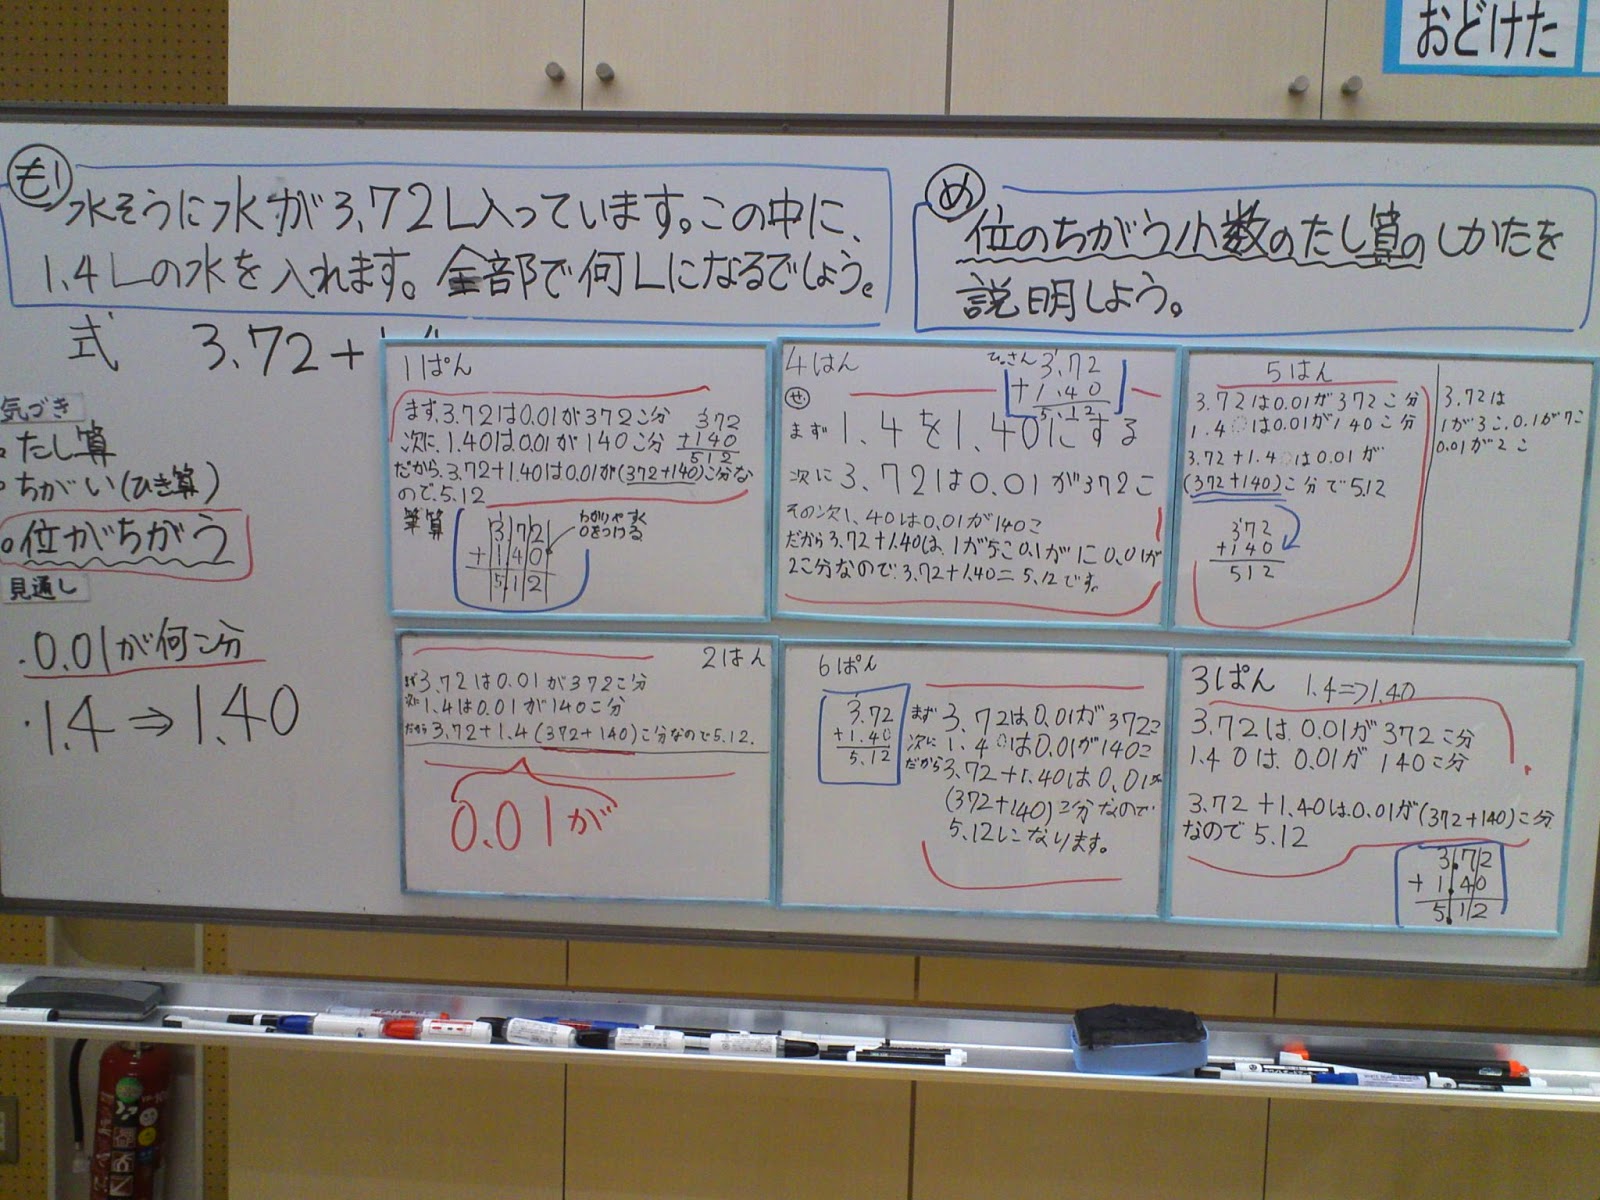 おどけた
も1
水そうに水が3.72L入っています。この中に、
1.4Lの水を入れます。全部で何Lになるでしょう。
め
位のちがう小数のたし算のしかたを
説明しよう。
式 3.72+
気づき
・たし算
・ちがい(ひき算)
・位がちがう
見通し
・0.01が何こ分
・1.4⇒1.40
1ぱん
まず、3.72は0.01が372こ分
次に、1.40は0.01が140こ分
だから、3.72+1.40は0.01が(372+140)こ分な
ので、5.12
372
+140
512
筆算
3 7 2
+ 1 4 0
5 1 2
わかりやすく
0をつける
4はん
ひっさん
3.72
+1.40
5.12
せ
まず 1.4を1.40にする
次に3.72は0.01が372こ
その次1.40は0.01が140こ
だから3.72+1.40は、1が5こ0.1が1こ0.01が
2こ分なので、3.72+1.40=5.12です。
5はん
3.72は0.01が372こ分
1.40は0.01が140こ分
3.72+1.40は0.01が
(372+140)こ分で5.12
372
+140
512
3.72は
1が3こ、0.1が7こ
0.01が2こ
2はん
まず3.72は0.01が372こ分
次に1.4は0.01が140こ分
だから3.72+1.4(372+140)こ分なので5.12.
0.01が
6ぱん
3.72
+1.40
5.12
まず 3.72は0.01が372こ
次に 1.40は0.01が140こ
だから3.72+1.40は0.01が
(372+140)こ分なので
5.12になります。
3ぱん 1.4⇒1.40
3.72は、0.01が372こ分
1.40は、0.01が140こ分
3.72+1.40は、0.01が(372+140)こ分
なので5.12
3.72
+1.40
5.12